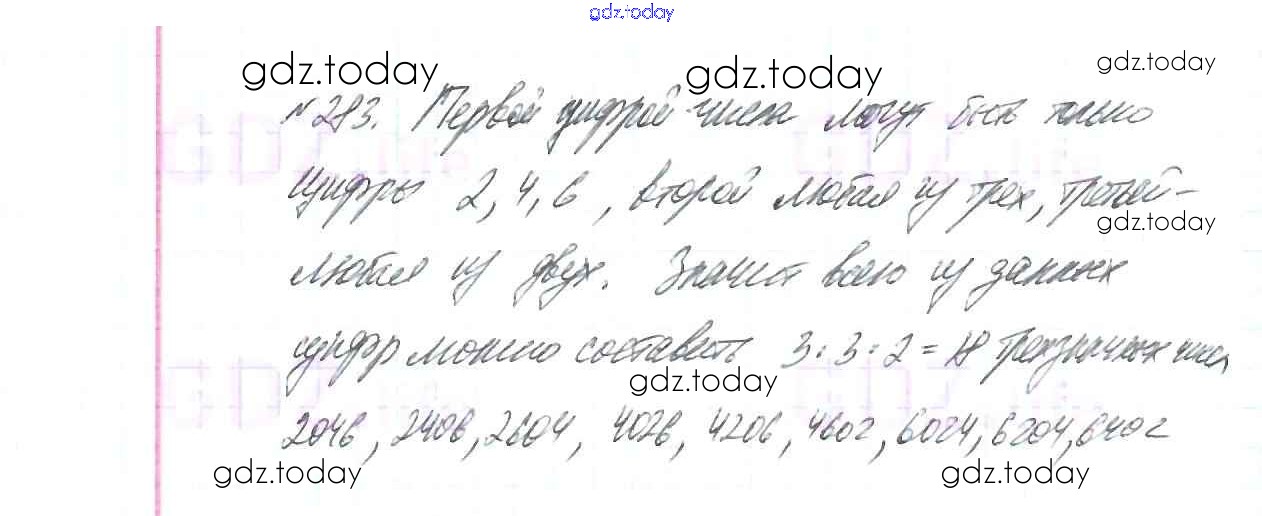 gdz.today
gdz.today gdz.today gdz.today
№283. Первой цифрой числа могут быть только
цифры 2, 4, 6, второй любая из трех, третьей -
gdz.today
любая из двух. Значит всего из данных
цифр можно составить 3·3·2=18 трехзначных чисел
gdz.today
2046, 2406, 2604, 4026, 4206, 4602, 6024, 6204, 6402
gdz.today gdz.today